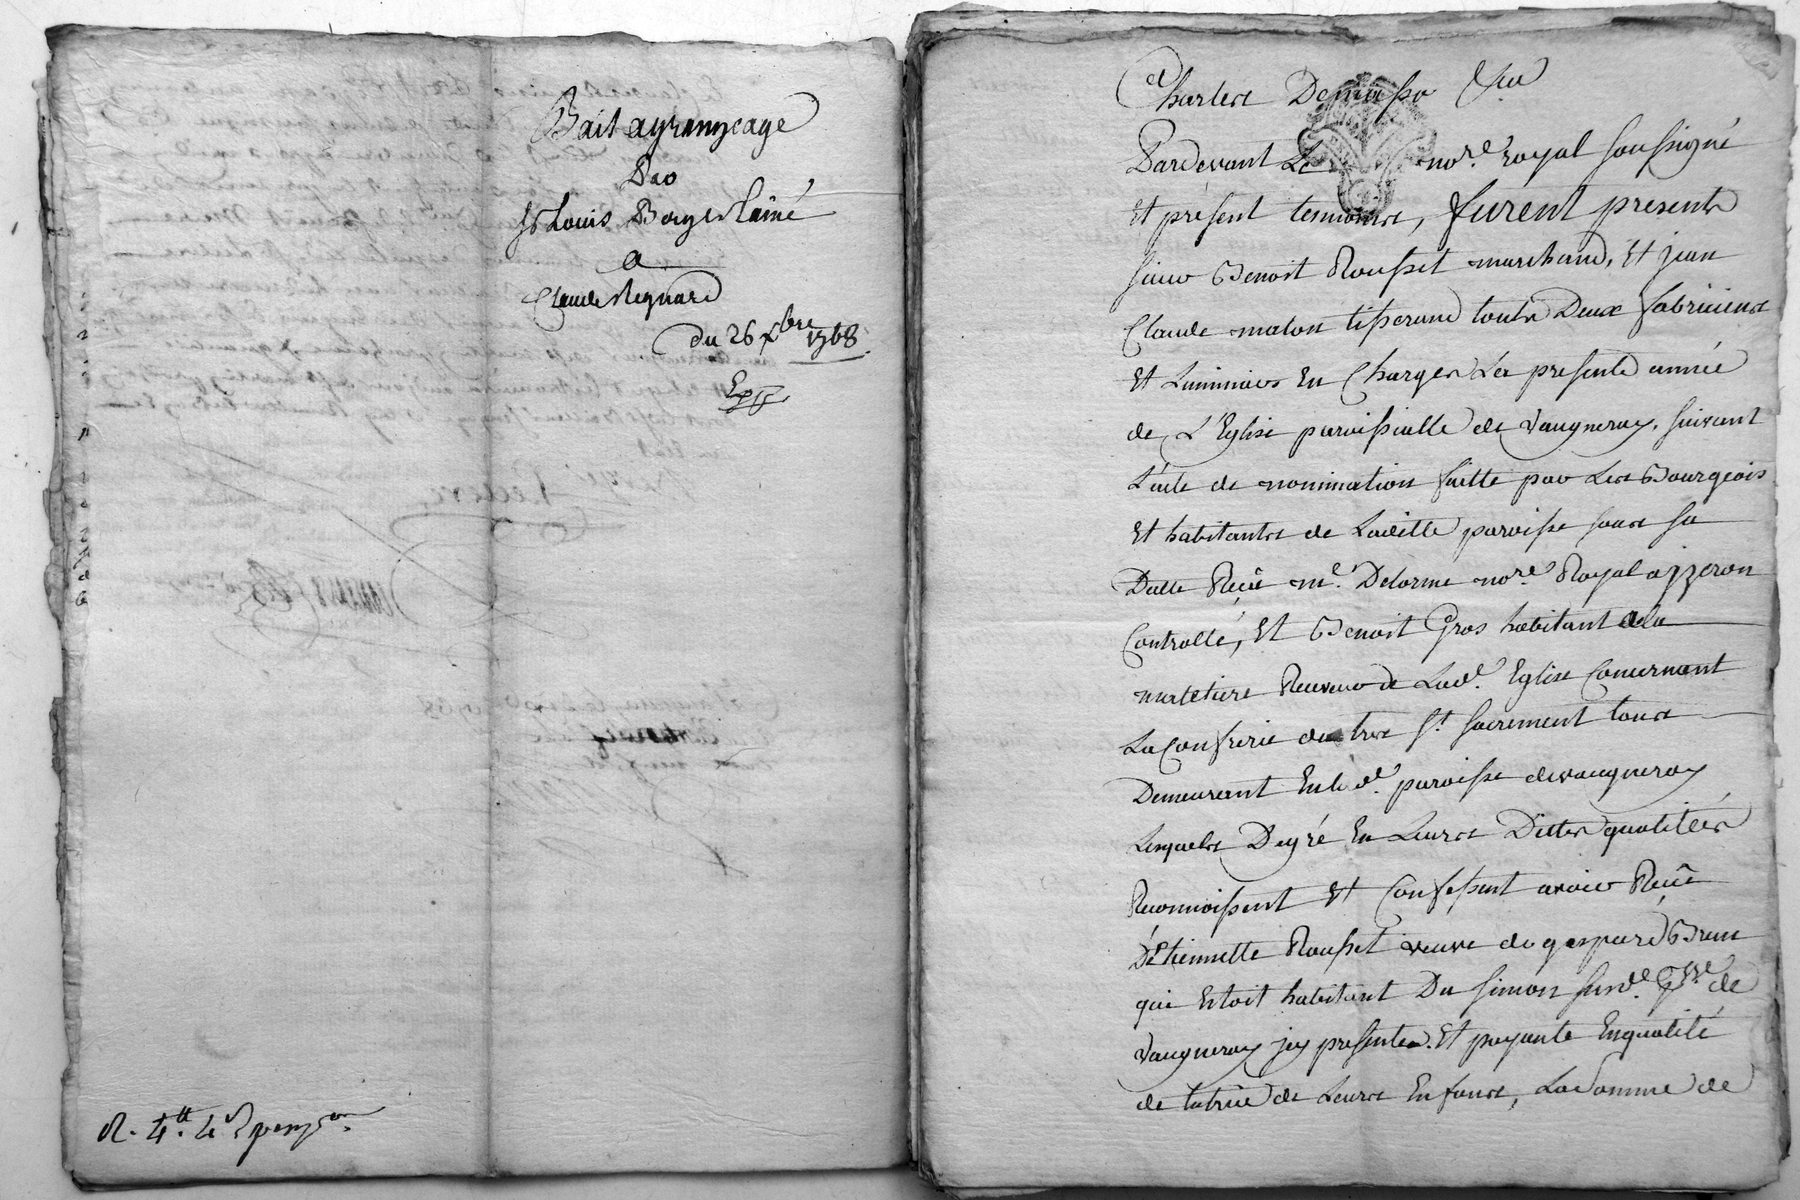 Bail a grangeage
Par
Sr Louis Boyer laîné
a
Claude Regnard
du 26 xbre 1768
Exp
R. 4tt. 4s
Pardevant Le nore. royal soussigné
Et présent temoins, furent presents
sieur Benoit Rousset marchand, Et jean
Claude maton tisserand touts Deux fabriciens
Et Luminiers En Charges La presente année
de L'Eglise paroissialle de vaugneray, suivant
L'acte de nomination faitte par Les Bourgeois
Et habitants de Laditte paroisse sous sa
Datte Reçû me. Delorme nore. Royal a jzeron
Controllé, Et Benoit Gros habitant de la
martetiere Receveur de Lade. Eglise Concernant
La Confrerie du tres st. sacrement tous
Demeurant En lad. paroisse de vaugneray
Lesquels De gré En Leurs Dittes qualitées
Reconnoissent Et Confessent avoir Reçû
D'Etiennette Rousset veuve de gaspard Brun
qui Etoit habitant Du simon susde. psse de
Vaugneray jcy presente. Et payante En qualité
de tutrice de Leurs Enfans, La somme de